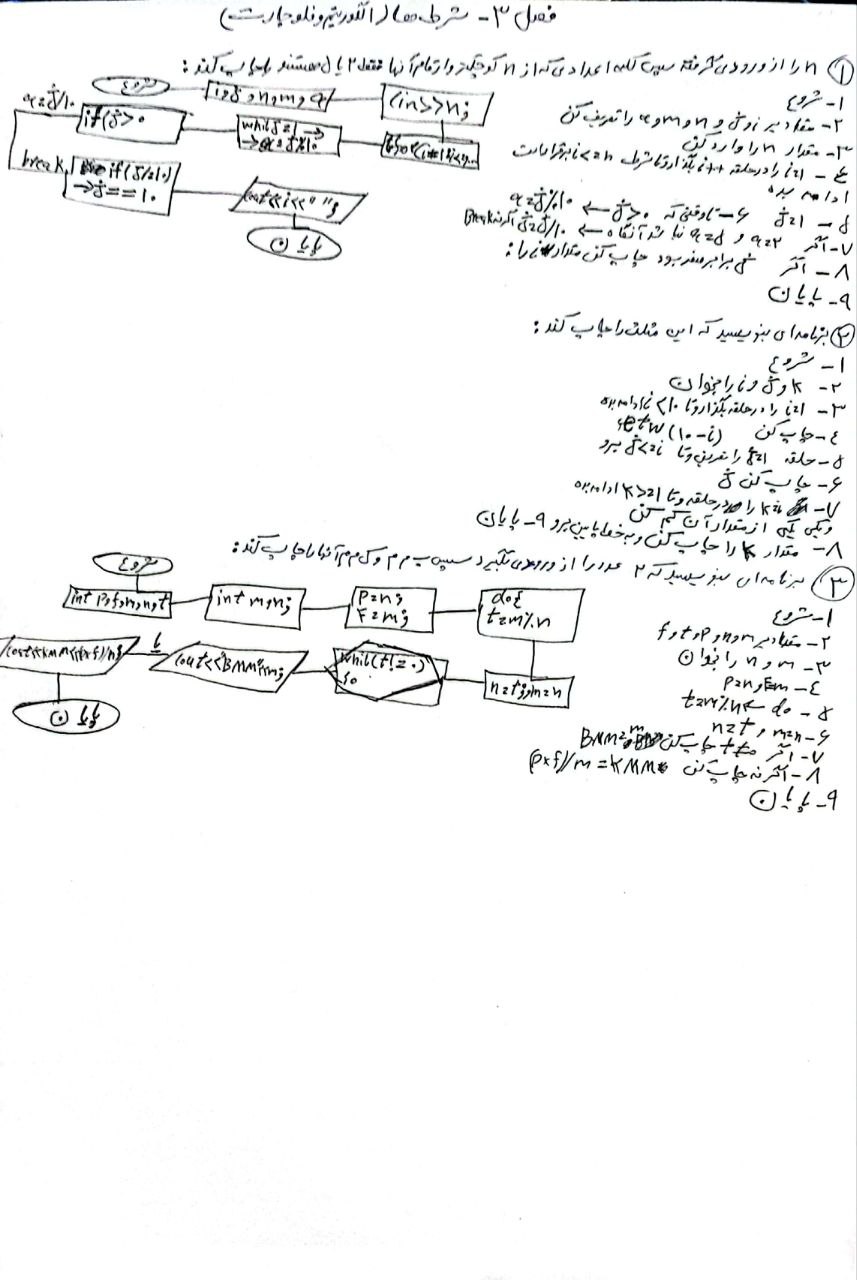 فصل ۳- شرط ها (الگوریتم و فلوچارت)
① n را از ورودی گرفته سپس کلیه اعدادی که از n کوچکتر و ارقام آنها فقط ۲ یا ۵ هستند را چاپ کند:
۱- شروع
۲- مقادیر i و j و n و m و a را تعریف کن
۳- مقدار n را وارد کن
۴- i=1 را در حلقه i++ بگذار تا شرط i<=n برقرار است
ادامه بده
۵- j=i ۶- تا وقتی که j>0 ← a=j%10
۷- اگر a=2 و a=5 نباشد آنگاه ← j=j/10 اگر نه Break
۸- اگر j برابر صفر بود چاپ کن مقدار i را:
۹- پایان
شروع
i,j,n,m,a
cin>>n;
while j=i →
→ a=j%10
if(j>0
a=j/10
break
if(j/=10)
→ j==10
cout<<i<<" ";
پایان
② برنامه ای بنویسید که این مثلث را چاپ کند:
۱- شروع
۲- k و j و i را بخوان
۳- i=1 را در حلقه بگذار و تا i<10 ادامه بده
۴- چاپ کن setw(10-i)
۵- حلقه j=1 را تعریف و تا j<=i برو
۶- چاپ کن j
۷- k=i را در حلقه و تا k>=1 ادامه بده
و یکی یکی از مقدار آن کم کن
۸- مقدار k را چاپ کن و به خط پایین برو ۹- پایان
③ برنامه ای بنویسید که ۲ عدد را از ورودی بگیرد سپس ب م م و ک م م آنها را چاپ کند:
۱- شروع
۲- مقادیر m و n و p و t و f
۳- m و n را بخوان
۴- p=n و F=m
۵- do → t=m%n
۶- m=n و n=t
۷- اگر چاپ کن BMM=m
۸- اگر نه چاپ کن (p×f)/m=KMM
۹- پایان
شروع
int p,f,m,n,t
int m,n;
p=n;
F=m;
do{
t=m%n
n=t;m=n
while(t!=0)
cout<<"BMM"<<m;
cout<<KMM<<(p×f)/m;
پایان